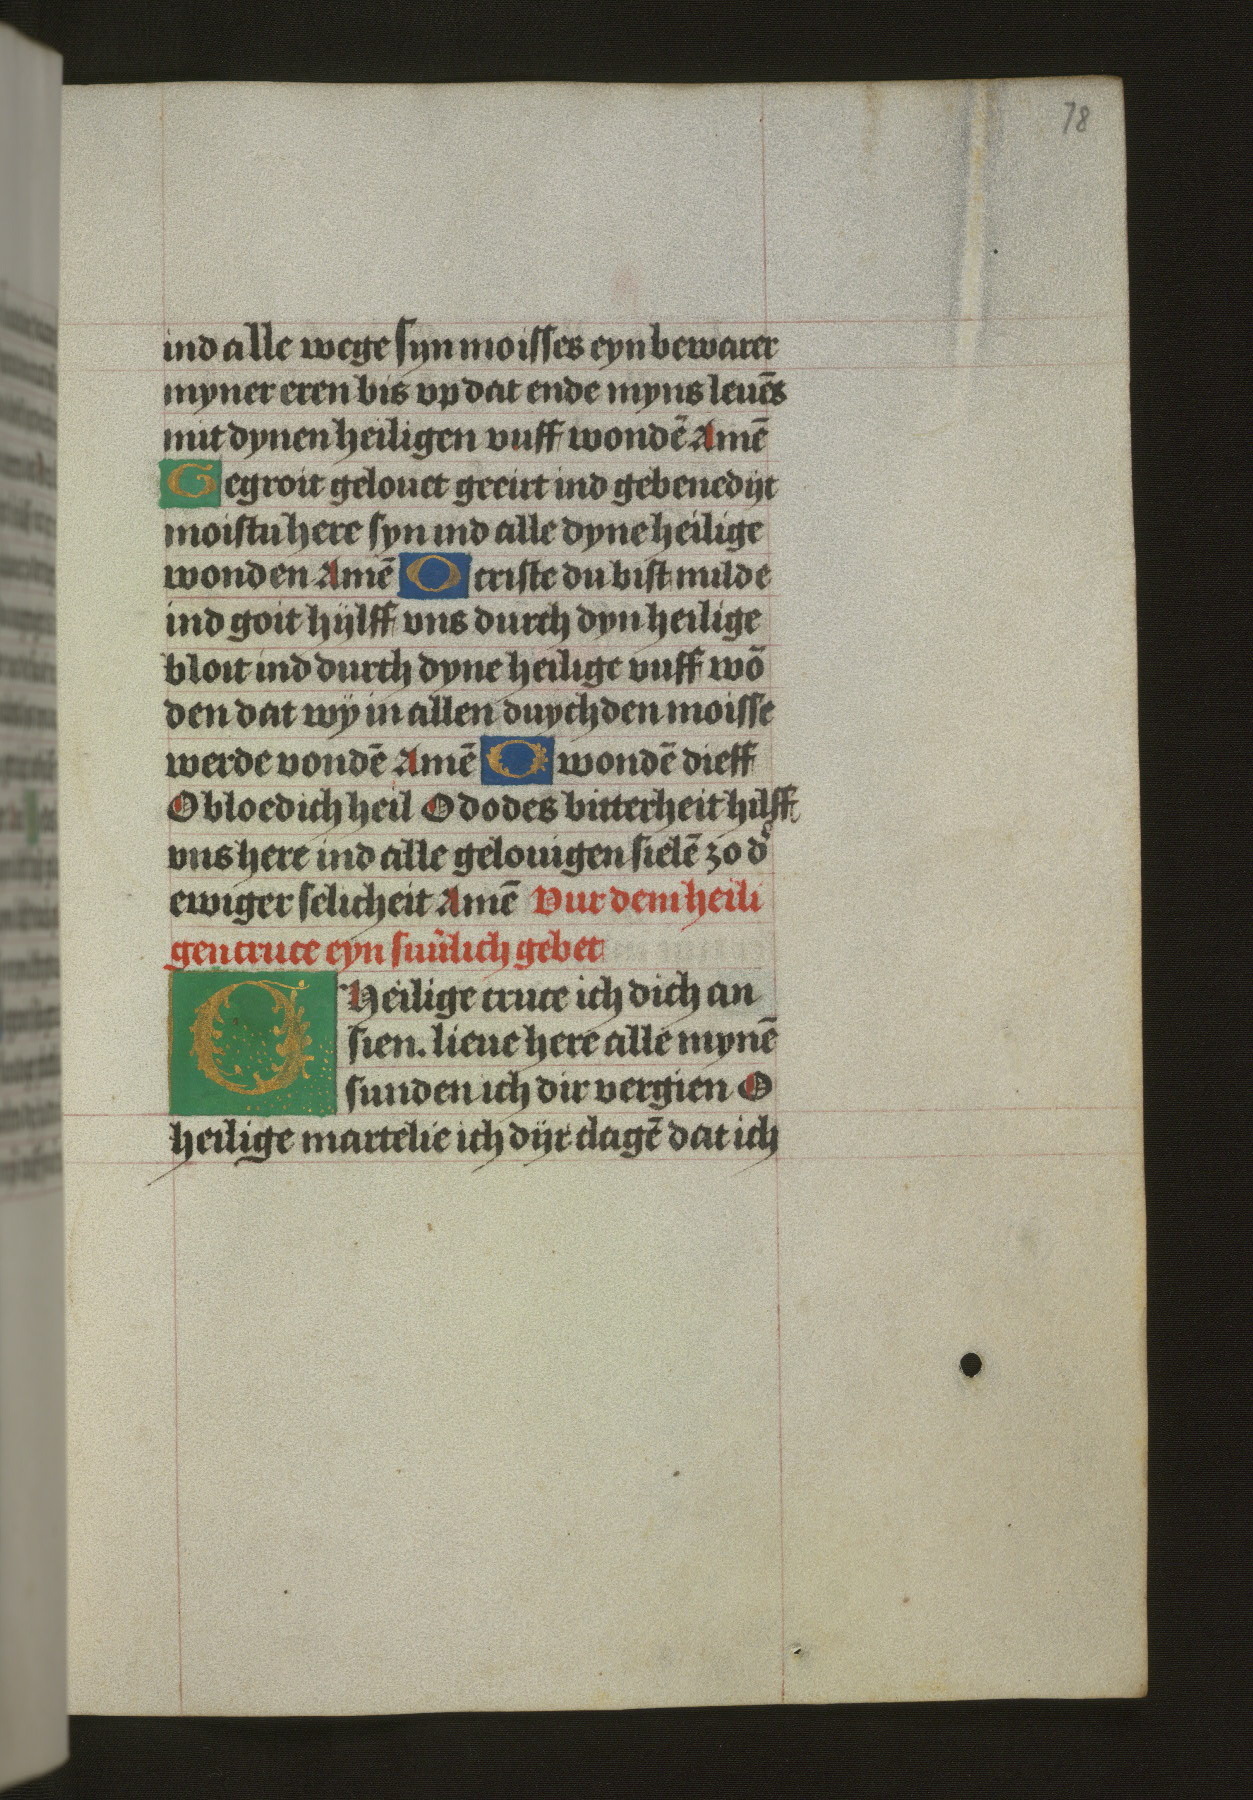 78
ind alle wege syn moisses eyn bewarer
myner eren bis vp dat ende myns leuēs
mit dynen heiligen vuff wondē Amē
Gegroit gelouet geeirt ind gebenedijt
moistu here syn ind alle dyne heilige
wonden Amē O criste du bist milde
ind goit hijlff vns durch dyn heilige
bloit ind durch dyne heilige vuff wō
den dat wij in allen duychden moisse
werde vondē Amē O wondē dieff
O bloedich heil O dodes bitterheit hilff
vns here ind alle gelouigen sielē zo d͛
ewiger selicheit Amē Vur dem heili
gen cruce eyn sūū͛lich gebet
O Heilige cruce ich dich an
sien. lieue here alle mynē
sunden ich dir vergien O
heilige martelie ich dijr clagē dat ich